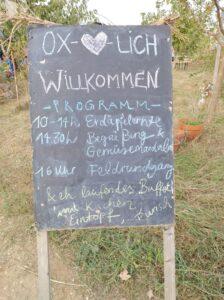 OX-♥-LICH
WILLKOMMEN
-PROGRAMM-
10-14h Erdäpfelernte
14:30h Begrüßung &
Gemüsemandala
16 Uhr Feldrundgang
& ein laufendes Buffet
mit Kuchen,
Eintopf, Punsch